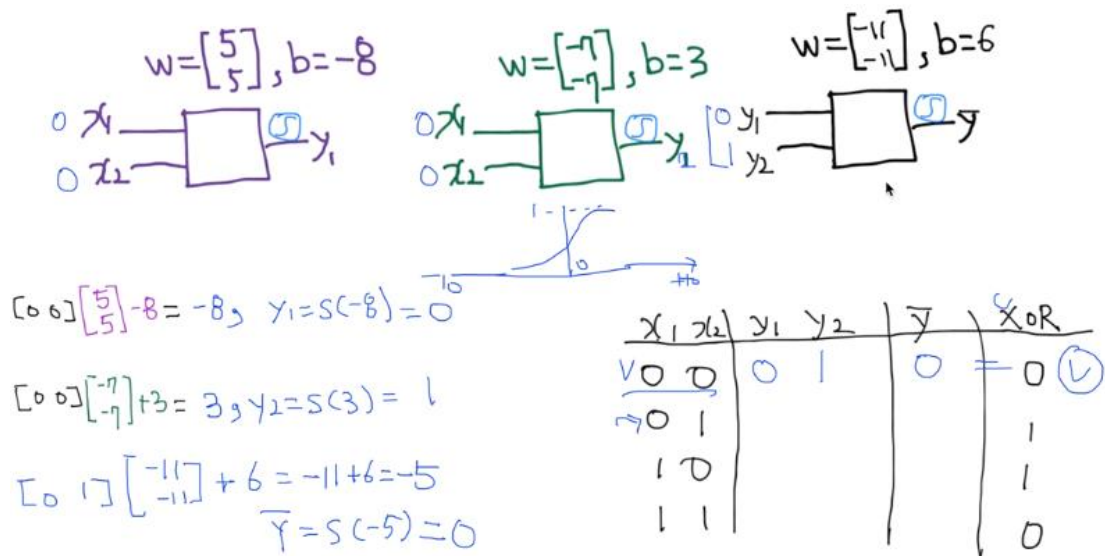 W=[5 5], b=-8
0 x1 S y1
0 x2
W=[-7 -7], b=3
0 x1 S y2
0 x2
W=[-11 -11], b=6
0 y1 S ȳ
1 y2
1
-10 0
[0 0][5 5]-8 = -8, y1=S(-8)=0
[0 0][-7 -7]+3= 3, y2=S(3)= 1
[0 1][-11 -11]+6 = -11+6=-5
ȳ=S(-5)=0
x1 x2 y1 y2 ȳ XOR
V 0 0 0 1 0 = 0 V
→ 0 1 1
1 0 1
1 1 0